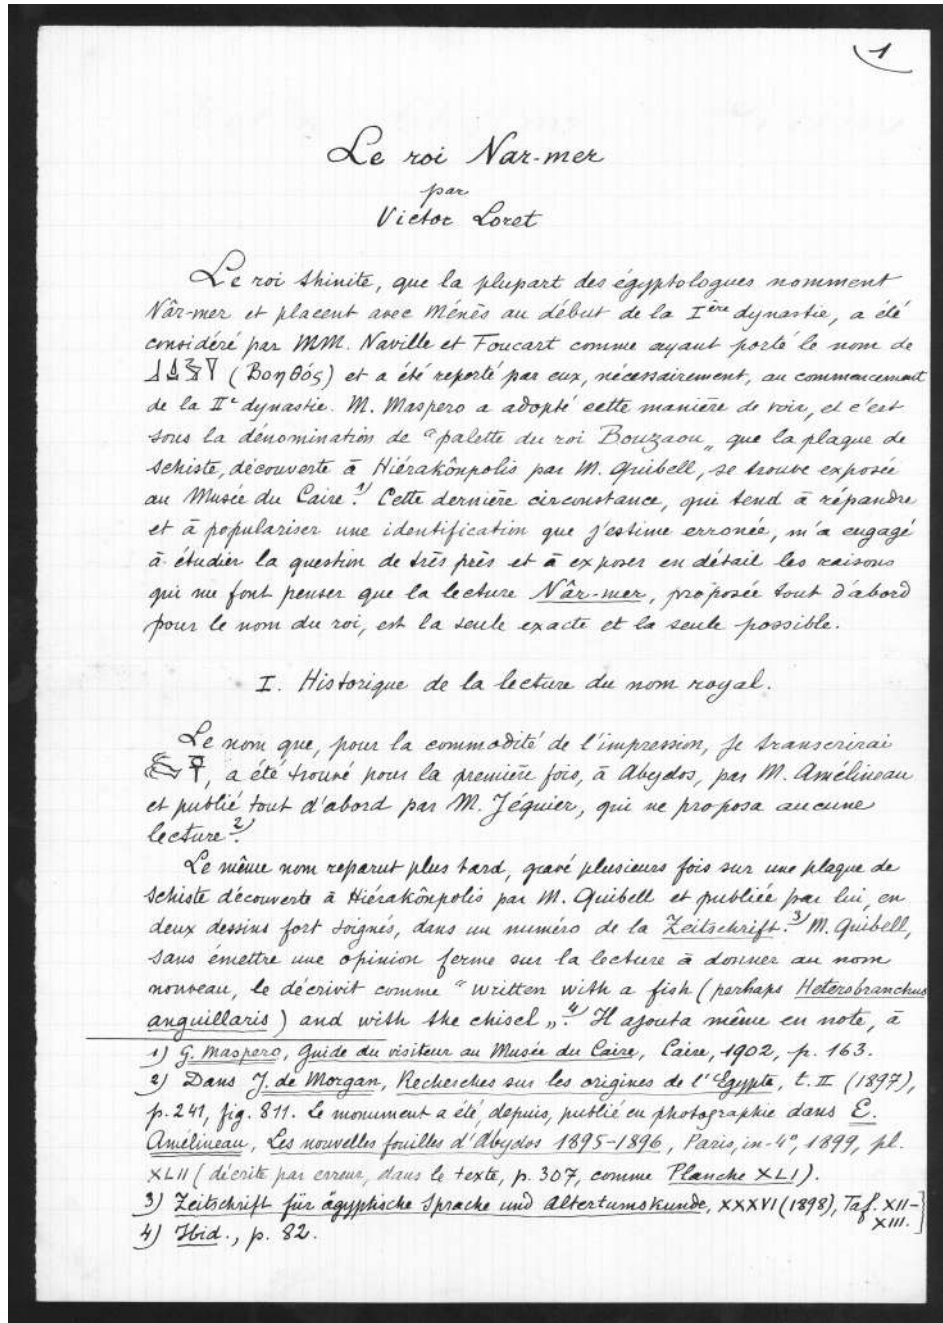 1
Le roi Nar-mer
par
Victor Loret
Le roi thinite, que la plupart des égyptologues nomment
Nâr-mer et placent avec Ménès au début de la Ière dynastie, a été
considéré par MM. Naville et Foucart comme ayant porté le nom de
(Βοηθός) et a été reporté par eux, nécessairement, au commencement
de la IIe dynastie. M. Maspero a adopté cette manière de voir, et c'est
sous la dénomination de "palette du roi Bouzaou„ que la plaque de
schiste, découverte à Hiérakônpolis par M. Quibell, se trouve exposée
au Musée du Caire.1) Cette dernière circonstance, qui tend à répandre
et à populariser une identification que j'estime erronée, m'a engagé
à étudier la question de très près et à exposer en détail les raisons
qui me font penser que la lecture Nâr-mer, proposée tout d'abord
pour le nom du roi, est la seule exacte et la seule possible.
I. Historique de la lecture du nom royal.
Le nom que, pour la commodité de l'impression, je transcrirai
, a été trouvé pour la première fois, à Abydos, par M. Amélineau
et publié tout d'abord par M. Jéquier, qui ne proposa aucune
lecture.2)
Le même nom reparut plus tard, gravé plusieurs fois sur une plaque de
schiste découverte à Hiérakônpolis par M. Quibell et publiée par lui, en
deux dessins fort soignés, dans un numéro de la Zeitschrift.3) M. Quibell,
sans émettre une opinion ferme sur la lecture à donner au nom
nouveau, le décrivit comme "written with a fish (perhaps Heterobranchus
anguillaris) and with the chisel„.4) Il ajouta même en note, à
1) G. Maspero, Guide du visiteur au Musée du Caire, Caire, 1902, p. 163.
2) Dans J. de Morgan, Recherches sur les origines de l'Egypte, t. II (1897),
p. 241, fig. 811. Le monument a été, depuis, publié en photographie dans E.
Amélineau, Les nouvelles fouilles d'Abydos 1895-1896, Paris, in-4°, 1899, pl.
XLII (décrite par erreur, dans le texte, p. 307, comme Planche XLI).
3) Zeitschrift für ägyptische Sprache und Altertumskunde, XXXVI (1898), Taf. XII-
XIII.
4) Ibid., p. 82.